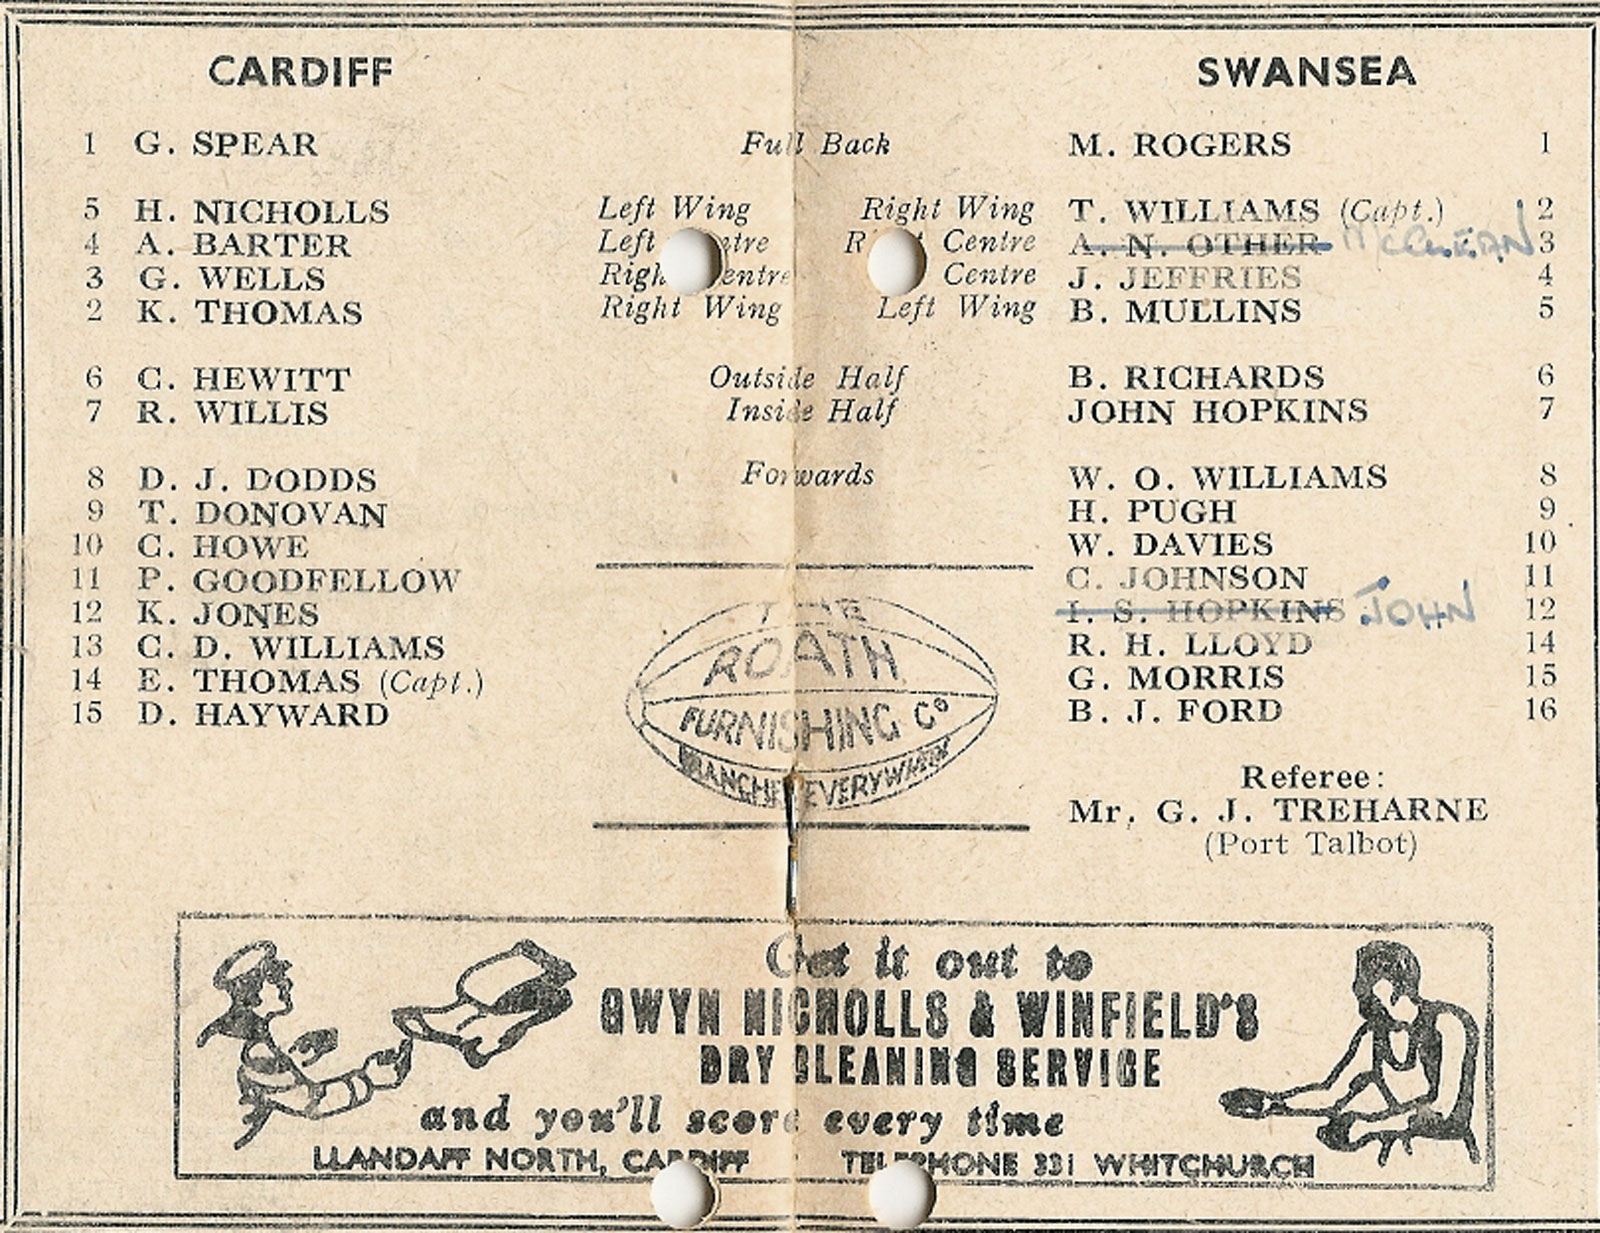 CARDIFF SWANSEA
1 G. SPEAR Full Back M. ROGERS 1
5 H. NICHOLLS Left Wing Right Wing T. WILLIAMS (Capt.) 2
4 A. BARTER Left Centre Right Centre A. N. OTHER McCLEAN 3
3 G. WELLS Right Centre Centre J. JEFFRIES 4
2 K. THOMAS Right Wing Left Wing B. MULLINS 5
6 C. HEWITT Outside Half B. RICHARDS 6
7 R. WILLIS Inside Half JOHN HOPKINS 7
8 D. J. DODDS Forwards W. O. WILLIAMS 8
9 T. DONOVAN H. PUGH 9
10 C. HOWE W. DAVIES 10
11 P. GOODFELLOW C. JOHNSON 11
12 K. JONES I. S. HOPKINS JOHN 12
13 C. D. WILLIAMS R. H. LLOYD 14
14 E. THOMAS (Capt.) G. MORRIS 15
15 D. HAYWARD B. J. FORD 16
THE
ROATH
FURNISHING Co
BRANCHES EVERYWHERE
Referee:
Mr. G. J. TREHARNE
(Port Talbot)
Get it out to
GWYN NICHOLLS & WINFIELD'S
DRY CLEANING SERVICE
and you'll score every time
LLANDAFF NORTH, CARDIFF TELEPHONE 331 WHITCHURCH